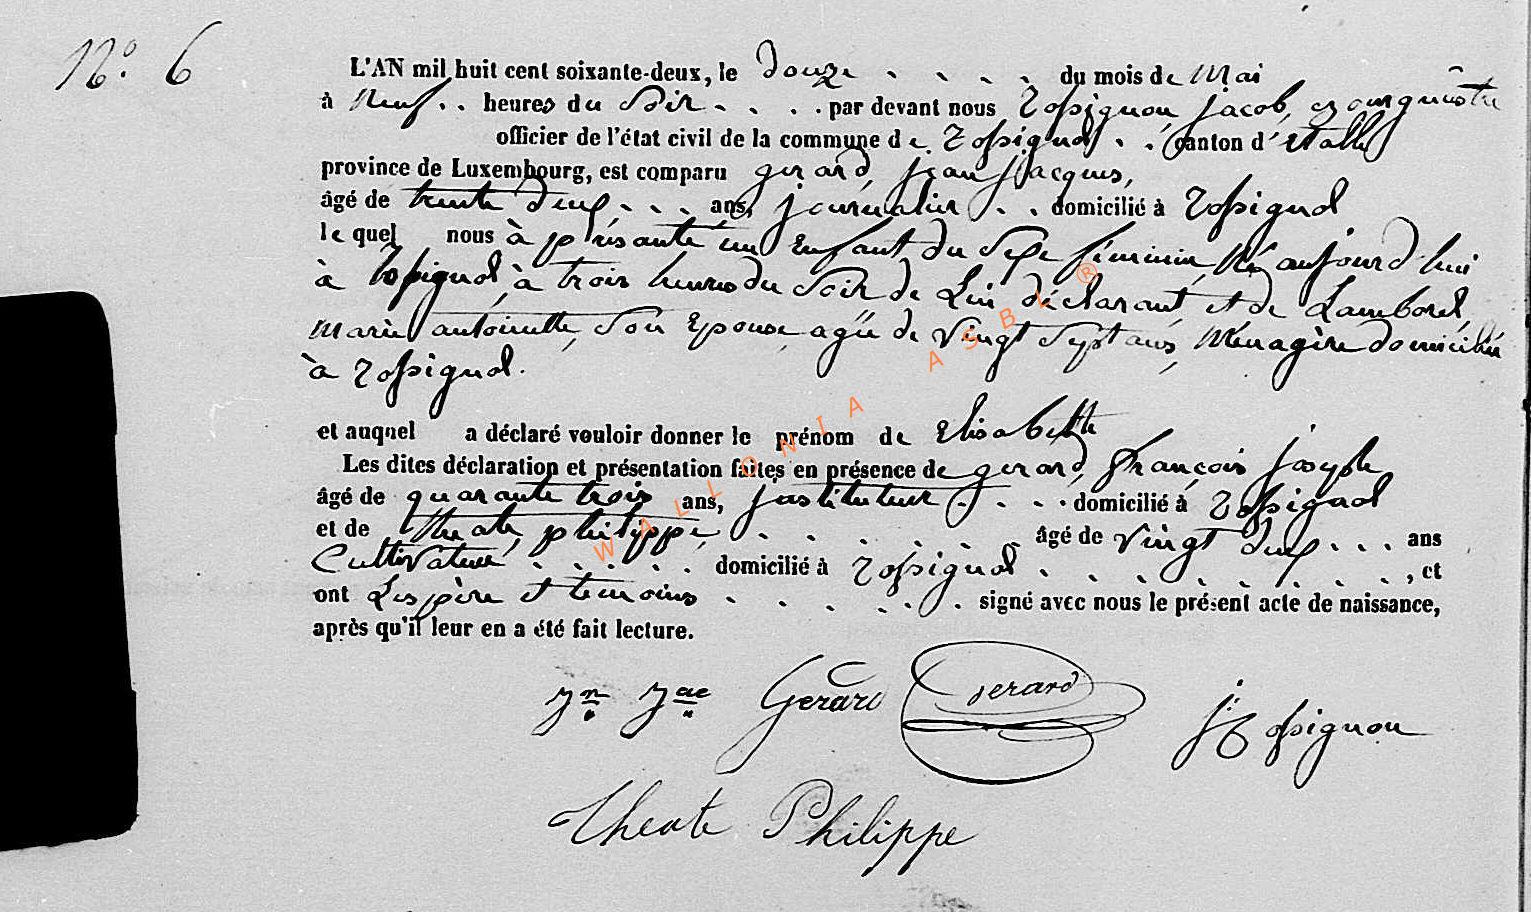 N°. 6
L'AN mil huit cent soixante-deux, le douze . . . . du mois de Mai
à Neuf . . heures du Soir . . . . par devant nous Rossignon, jacob, Bourgumêstre
officier de l'état civil de la commune de Rossignol . . canton d'étalle
province de Luxembourg, est comparu gerard, jean jacques,
âgé de trente deux . . . ans, journalier . . domicilié à Rossignol
lequel nous à présanté un Enfant du Sexe féminin, Né aujourd'hui
à Rossignol, à trois heures du Soir de Lui déclarant, et de Lamborel,
Marie antoinette, Son Epouse, agée de Vingt Sept ans, Ménagère domiciliée
à Rossignol.
et auquel a déclaré vouloir donner le prénom de Elisabethe
Les dites déclaration et présentation faites en présence de gerard, françois joseph
âgé de quarante trois ans, instituteur . . . . domicilié à Rossignol
et de theate, philippe, . . . . . . . âgé de vingt deux . . . ans
Cultivateur . . . . . domicilié à Rossignol . . . . . . . . , et
ont Les père et temoins . . . . . . signé avec nous le présent acte de naissance,
après qu'il leur en a été fait lecture.
Jn Jac Gerard Gerard J Rossignon
Theate Philippe
WALLONIA ASBL ®